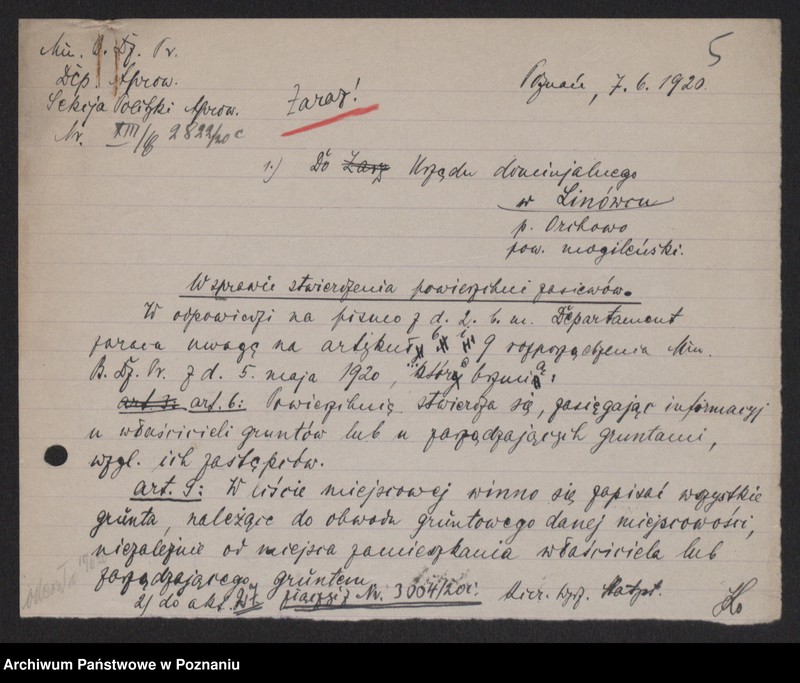 5
Min. B. Dz. Pr.
Dep. Aprow.
Sekcja Polityki Aprow.
Nr. XIII/6 2822/20 c
Zaraz!
Poznań, 7. 6. 1920.
1.) Do Zarz Urzędu dominjalnego
w Linówcu
p. Orchowo
pow. mogileński.
W sprawie stwierdzenia powierzchni zasiewów.
W odpowiedzi na pismo z d. 2. b. m. Departament
zwraca uwagę na artykuł 6 i 9 rozporządzenia Min.
B. Dz. Pr. z d. 5. maja 1920, które brzmią:
art. 6: Powierzchnię stwierdza się, zasięgając informacyj
u właścicieli gruntów lub u zarządzających gruntami,
wzgl. ich zastępców.
art. 9: W liście miejscowej winno się zapisać wszystkie
grunta, należące do obwodu gruntowego danej miejscowości,
niezależnie od miejsca zamieszkania właściciela lub
zarządzającego gruntem
2/ do akt. Nr. 3004/20c. Kier. Wydz.
Archiwum Państwowe w Poznaniu